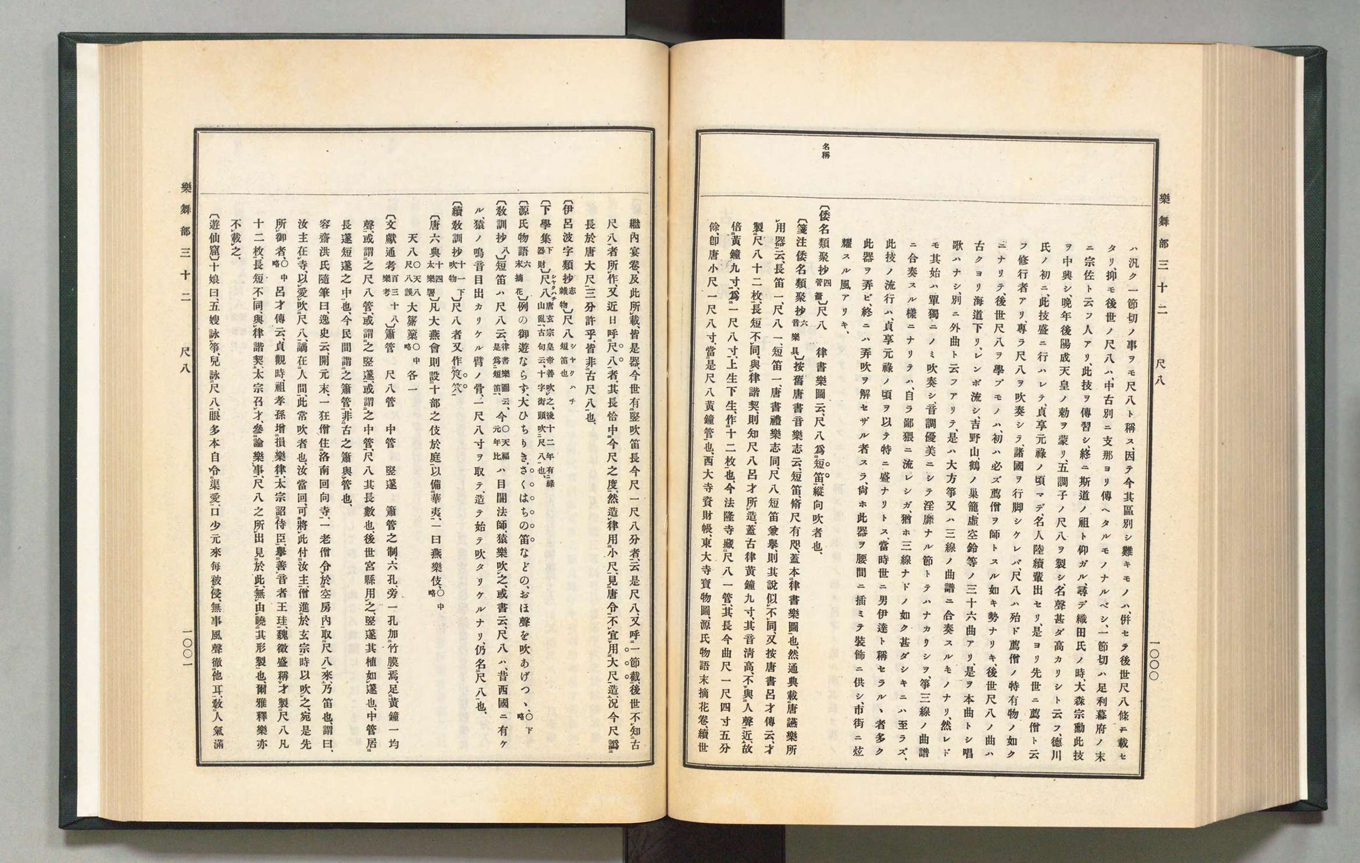 樂舞部三十二 尺八
一〇〇〇
ハ汎ク一節切ノ事ヲモ尺八ト稱ス、因テ今其區別シ難キモノハ、併セテ後世尺八條ニ載セ
タリ、抑モ後世ノ尺八ハ、中古別ニ支那ヨリ傳ヘタルモノナルベシ、一節切ハ足利幕府ノ末
ニ宗佐ト云フ人アリ、此技ヲ傳習シ、終ニ斯道ノ祖ト仰ガル、尋デ織田氏ノ時、大森宗勳此技
ヲ中興シ、晩年後陽成天皇ノ勅ヲ蒙リ、五調子ノ尺八ヲ製シ、名聲甚ダ高カリシト云フ、德川
氏ノ初ニ此技盛ニ行ハレテ、貞享元祿ノ頃マデ、名人陸續輩出セリ、是ヨリ先世ニ薦僧ト云
フ修行者アリ、專ラ尺八ヲ吹奏シテ、諸國ヲ行脚シケレバ、尺八ハ殆ド薦僧ノ特有物ノ如ク
ニナリテ、後世尺八ヲ學ブモノハ、初ハ必ズ薦僧ヲ師トスル如キ勢ナリキ、後世尺八ノ曲ハ
古クヨリ海道下リ、レンボ流シ、吉野山、鶴ノ巢籠、虛空鈴等ノ三十六曲アリ、是ヲ本曲トシ、唱
歌ハナシ、別ニ外曲ト云フアリテ、是ハ大方箏又ハ三線ノ曲譜ニ合奏スルモノナリ、然レド
モ其始ハ單獨ニノミ吹奏シ、音調優美ニシテ淫靡ナル節トテハナカリシヲ、箏三線ノ曲譜
ニ合奏スル樣ニナリテハ、自ラ鄙猥ニ流レシガ、猶ホ三線ナドノ如ク甚ダシキニハ至ラズ、
此技ノ流行ハ、貞享元祿ノ頃ヲ以テ特ニ盛ナリトス、當時世ニ男伊達ト稱セラルヽ者、多ク
此器ヲ弄ビ、終ニハ弄吹ヲ解セザル者スラ、尙ホ此器ヲ腰間ニ插ミテ裝飾ニ供シ、市街ニ炫
燿スル風アリキ、
名稱
〔倭名類聚抄四管籥〕尺八 律書樂圖云、尺八爲短笛、縱向吹者也、
〔箋注倭名類聚抄六音樂具〕按舊唐書音樂志云、短笛、脩尺有咫、蓋本律書樂圖也、然通典載唐讌樂所
用器云、長笛一、尺八一、短笛一、唐書禮樂志同、尺八短笛兼擧、則其說似不同、又按唐書呂才傳云、才
製尺八十二枚、長短不同、與律諧契、則知尺八呂才所造、蓋古律黃鐘九寸、其音淸高、不與人聲近、故
倍黃鐘九寸、爲一尺八寸、上生下生、作十二枚也、今法隆寺藏尺八一管、其長今曲尺一尺四寸五分
餘、卽唐小尺一尺八寸、當是尺八黃鐘管也、西大寺資財帳、東大寺寶物圖、源氏物語末摘花卷、續世
繼內宴卷、及此所載、皆是器、今世有竪吹笛、長今尺一尺八分者、云是尺八、又呼一節截、後世不知古
尺八者所作、又近日呼尺八者、其長恰中今尺之度、然造律用小尺、見唐令、不宜用大尺造、況今尺譌
長於唐大尺三分許乎、皆非古尺八也、
〔伊呂波字類抄志雜物〕尺八シヤクハチ短笛也
〔下學集下器財〕尺八シヤクハチ唐玄宗皇帝善吹之、後十二年有祿山亂、古句云、十字街頭吹尺八也、
〔源氏物語六末摘花〕例の御遊ならず、大ひちりき、さくはちの笛などの、おほ聲を吹あげつゝ、〇下略
〔敎訓抄八〕短笛ハ尺八云、律書樂圖云、是爲短笛、今〇天福元年比ハ目闇法師猿樂吹之、或書云、尺八ハ、昔西國ニ有ケ
ル、猿ノ鳴音目出カリケル臂ノ骨一尺八寸ヲ取テ造テ、始テ吹タリケルナリ、仍名尺八也、
〔續敎訓抄十一吹物〕尺八者又作䇛笶、
〔唐六典十四太樂署〕凡大燕會、則設十部之伎於庭、以備華夷、一曰燕樂伎、〇中略
天八〇天八尺八誤大篳篥〇中略各一
〔文獻通考百三十八樂考〕簫管 尺八管 中管 竪篴 簫管之制六孔、旁一孔加竹膜焉、足黃鐘一均
聲、或謂之尺八管、或謂之竪篴、或謂之中管、尺八其長數也、後世宮縣用之、竪篴其植如篴也、中管居
長篴短篴之中也、今民間謂之簫管、非古之簫與管也、
〔容齋洪氏隨筆〕曰、逸史云、開元末一狂僧、住洛南回向寺、一老僧令於空房內取尺八來、乃笛也、謂曰、
汝主在寺、以愛吹尺八、謫在人間、此常吹者也、汝當回可將此付汝主、僧進於玄宗、時以吹之、宛是先
所御者、〇中略呂才傳云、貞觀時、祖孝孫增損樂律、太宗詔侍臣、擧善音者、王珪、魏徵盛稱才製尺八凡
十二枚、長短不同、與律諧契、太宗召才、參論樂事、尺八之所出見於此、無由曉其形製也、爾雅釋樂亦
不載之、
〔遊仙窟〕十娘曰、五嫂詠箏、兒詠尺八、眼多本自令渠愛、口少元來每被侵、無事風聲徹他耳、敎人氣滿
樂舞部三十二 尺八
一〇〇一